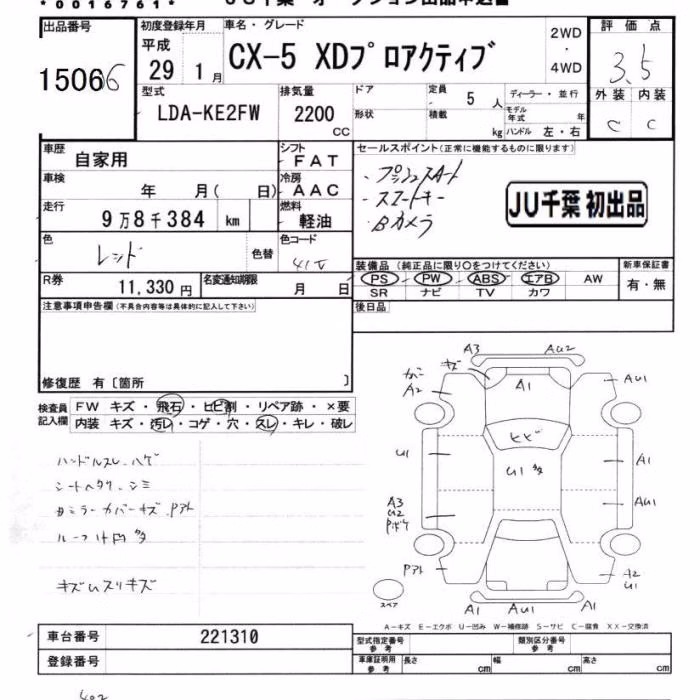 *0016761*
出品番号
15066
初度登録年月
平成
29年 1月
車名・グレード
CX-5 XDプロアクティブ
2WD
・
4WD
評価点
3.5
外装 内装
C C
型式
LDA-KE2FW
排気量
2200
CC
ドア
形状
定員
5人
積載
kg
ディーラー・並行
モデル年式 年
ハンドル 左・右
車歴
自家用
車検
年 月( 日)
走行
9万8千384 km
色
レッド
色替
シフト
FAT
冷房
AAC
燃料
軽油
色コード
41V
R券
11,330円
名変通知期限
月 日
セールスポイント(正常に機能するものに限ります)
・プッシュスタート
・スマートキー
・Bカメラ
JU千葉 初出品
装備品(純正品に限り○をつけてください)
PS PW ABS エアB AW
SR ナビ TV カワ
新車保証書
有・無
後日品
注意事項申告欄(不具合内容等は具体的に記入して下さい)
修復歴 有〔箇所 〕
検査員
記入欄
FW キズ・飛石・ヒビ割・リペア跡・×要
内装 キズ・汚レ・コゲ・穴・スレ・キレ・破レ
ハンドルスレ、ハゲ
シートヘタリ、シミ
カミラーカバーキズ、Pアト
ルーフ凹多
キズムスリキズ
A3 AU2
カバー キズ
A2
A1
AU1
ヒビ
U1
U1多
A1
A3
U2
Pボケ
AU1
Pアト
A2
U1
スペア
A1 AU1 A1
A―キズ E―エクボ U―凹み W―補修跡 S―サビ C―腐食 XX―交換済
車台番号
221310
登録番号
型式指定番号
参考
類別区分番号
参考
車庫証明用
参考
長さ cm
幅 cm
高さ cm